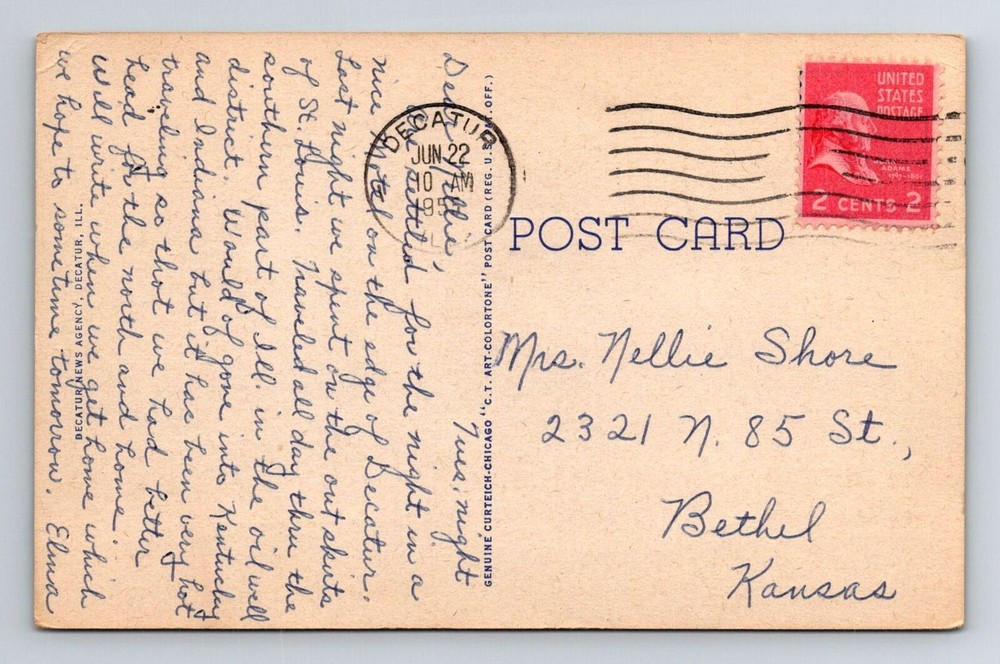 Tues. night
Dear Nellie,
Am settled for the night in a
nice motel on the edge of Decatur.
Last night we spent on the out skirts
of St. Louis. Traveled all day thru the
southern part of Ill. in the oil well
district. Would of gone into Kentucky
and Indiana but it has been very hot
traveling so thot we had better
head for the north and home.
Will write when we get home which
we hope to sometime tomorrow. Elma
DECATUR NEWS AGENCY, DECATUR, ILL.
GENUINE CURTEICH-CHICAGO "C.T. ART-COLORTONE" POST CARD (REG. U.S. OFF.)
DECATUR
JUN 22
10 AM
195
UNITED
STATES
POSTAGE
ADAMS
2 CENTS 2
POST CARD
Mrs. Nellie Shore
2321 N. 85 St.,
Bethel
Kansas